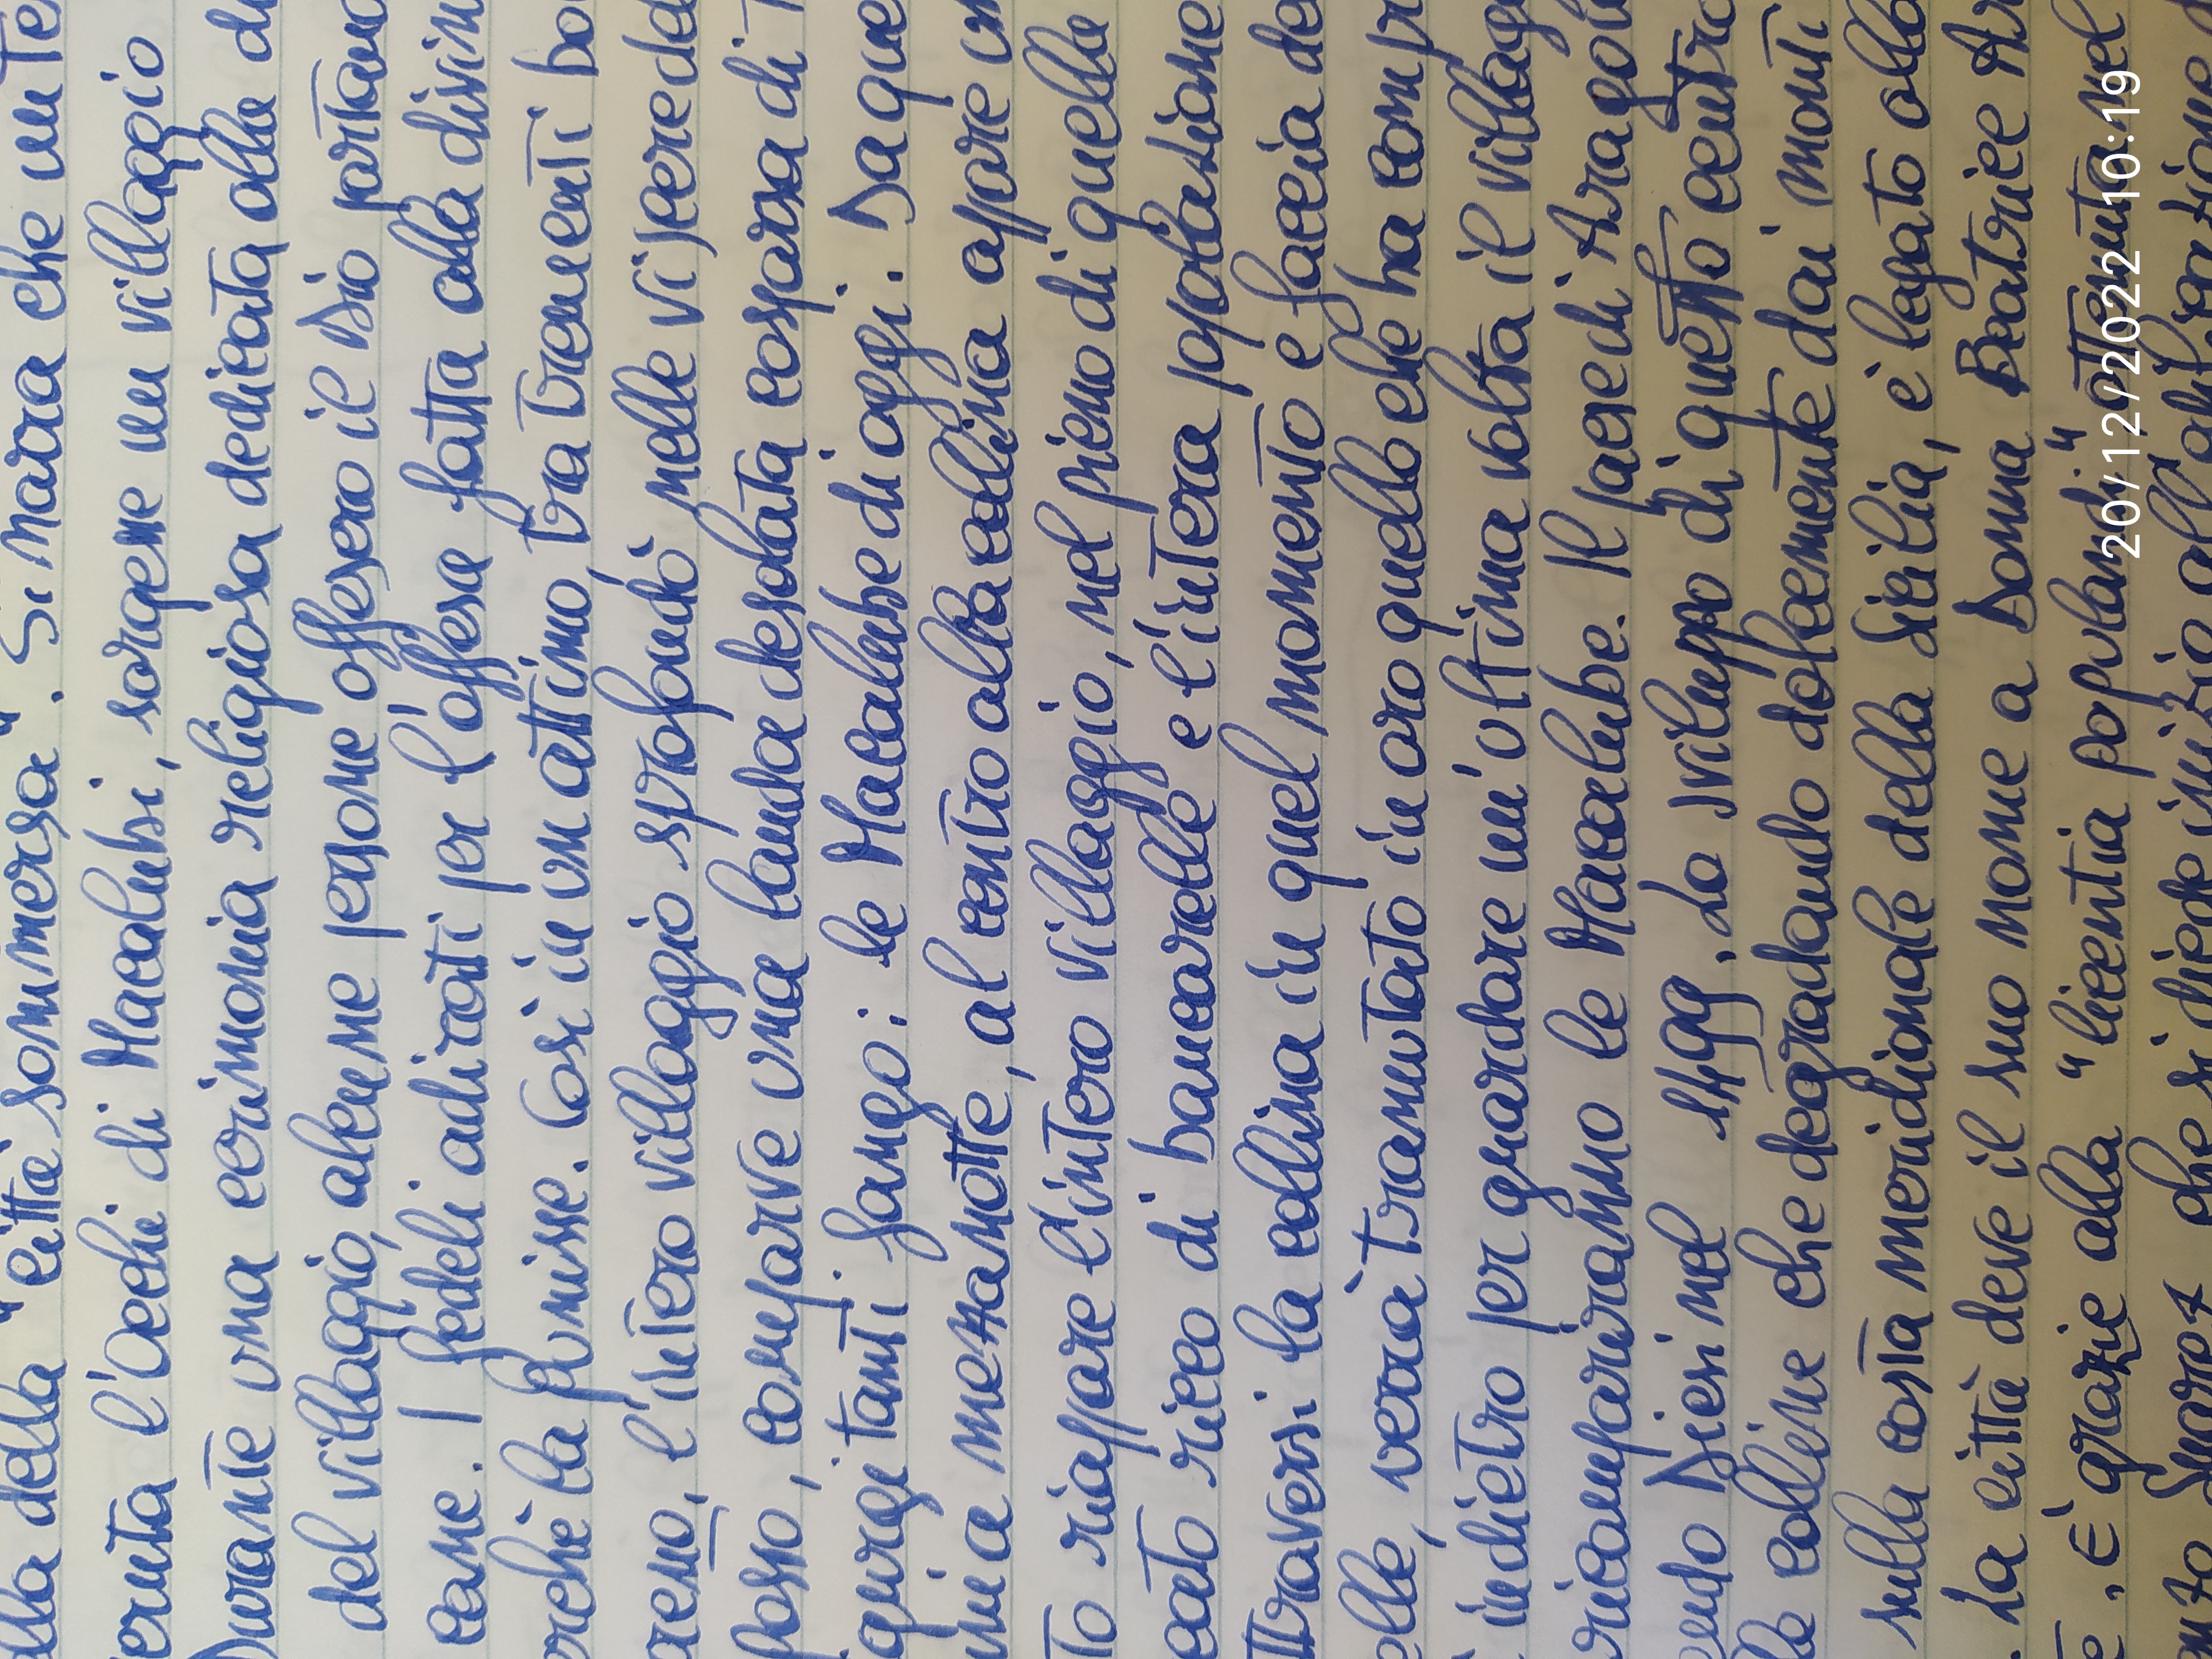 della "città sommersa". Si narra che un te
l'occhi di Macalubsi, sorgene un villaggio
Durante una cerimonia religiosa dedicata alla d
del villaggio, alcune persone offesero il Dio portand
cane. I fedeli adirati per l'offesa fatta alla divin
perchè la punisse. Così in un attimo, tra tremendi bo
l'intero villaggio sprofondò nelle viscere de
posto, comparve una landa desolata cosparsa di
tanti fango: le Macalube di oggi. Da que
a mezzanotte, al centro alla collina appare un
riappare l'intero villaggio, nel pieno di quella
ricco di bancarelle e l'intera popolazione
la collina in quel momento e faccia de
elle, verrà tramutato in oro quello che ha compr
indietro per guardare un'ultima volta il villagg
ricompariranno le Macalube. Il paese di Aragon
endo Diesi nel 1499. Lo sviluppo di questo centro
le colline che degradando dolcemente dai monti
sulla costa meridionale della Sicilia, è legato alla
. La città deve il suo nome a Donna Beatrice Ar
è. È grazie alla "licentia populandi" ottenuta nel
Suarez che si diede inizio all'edificazione
20/12/2022 10:19